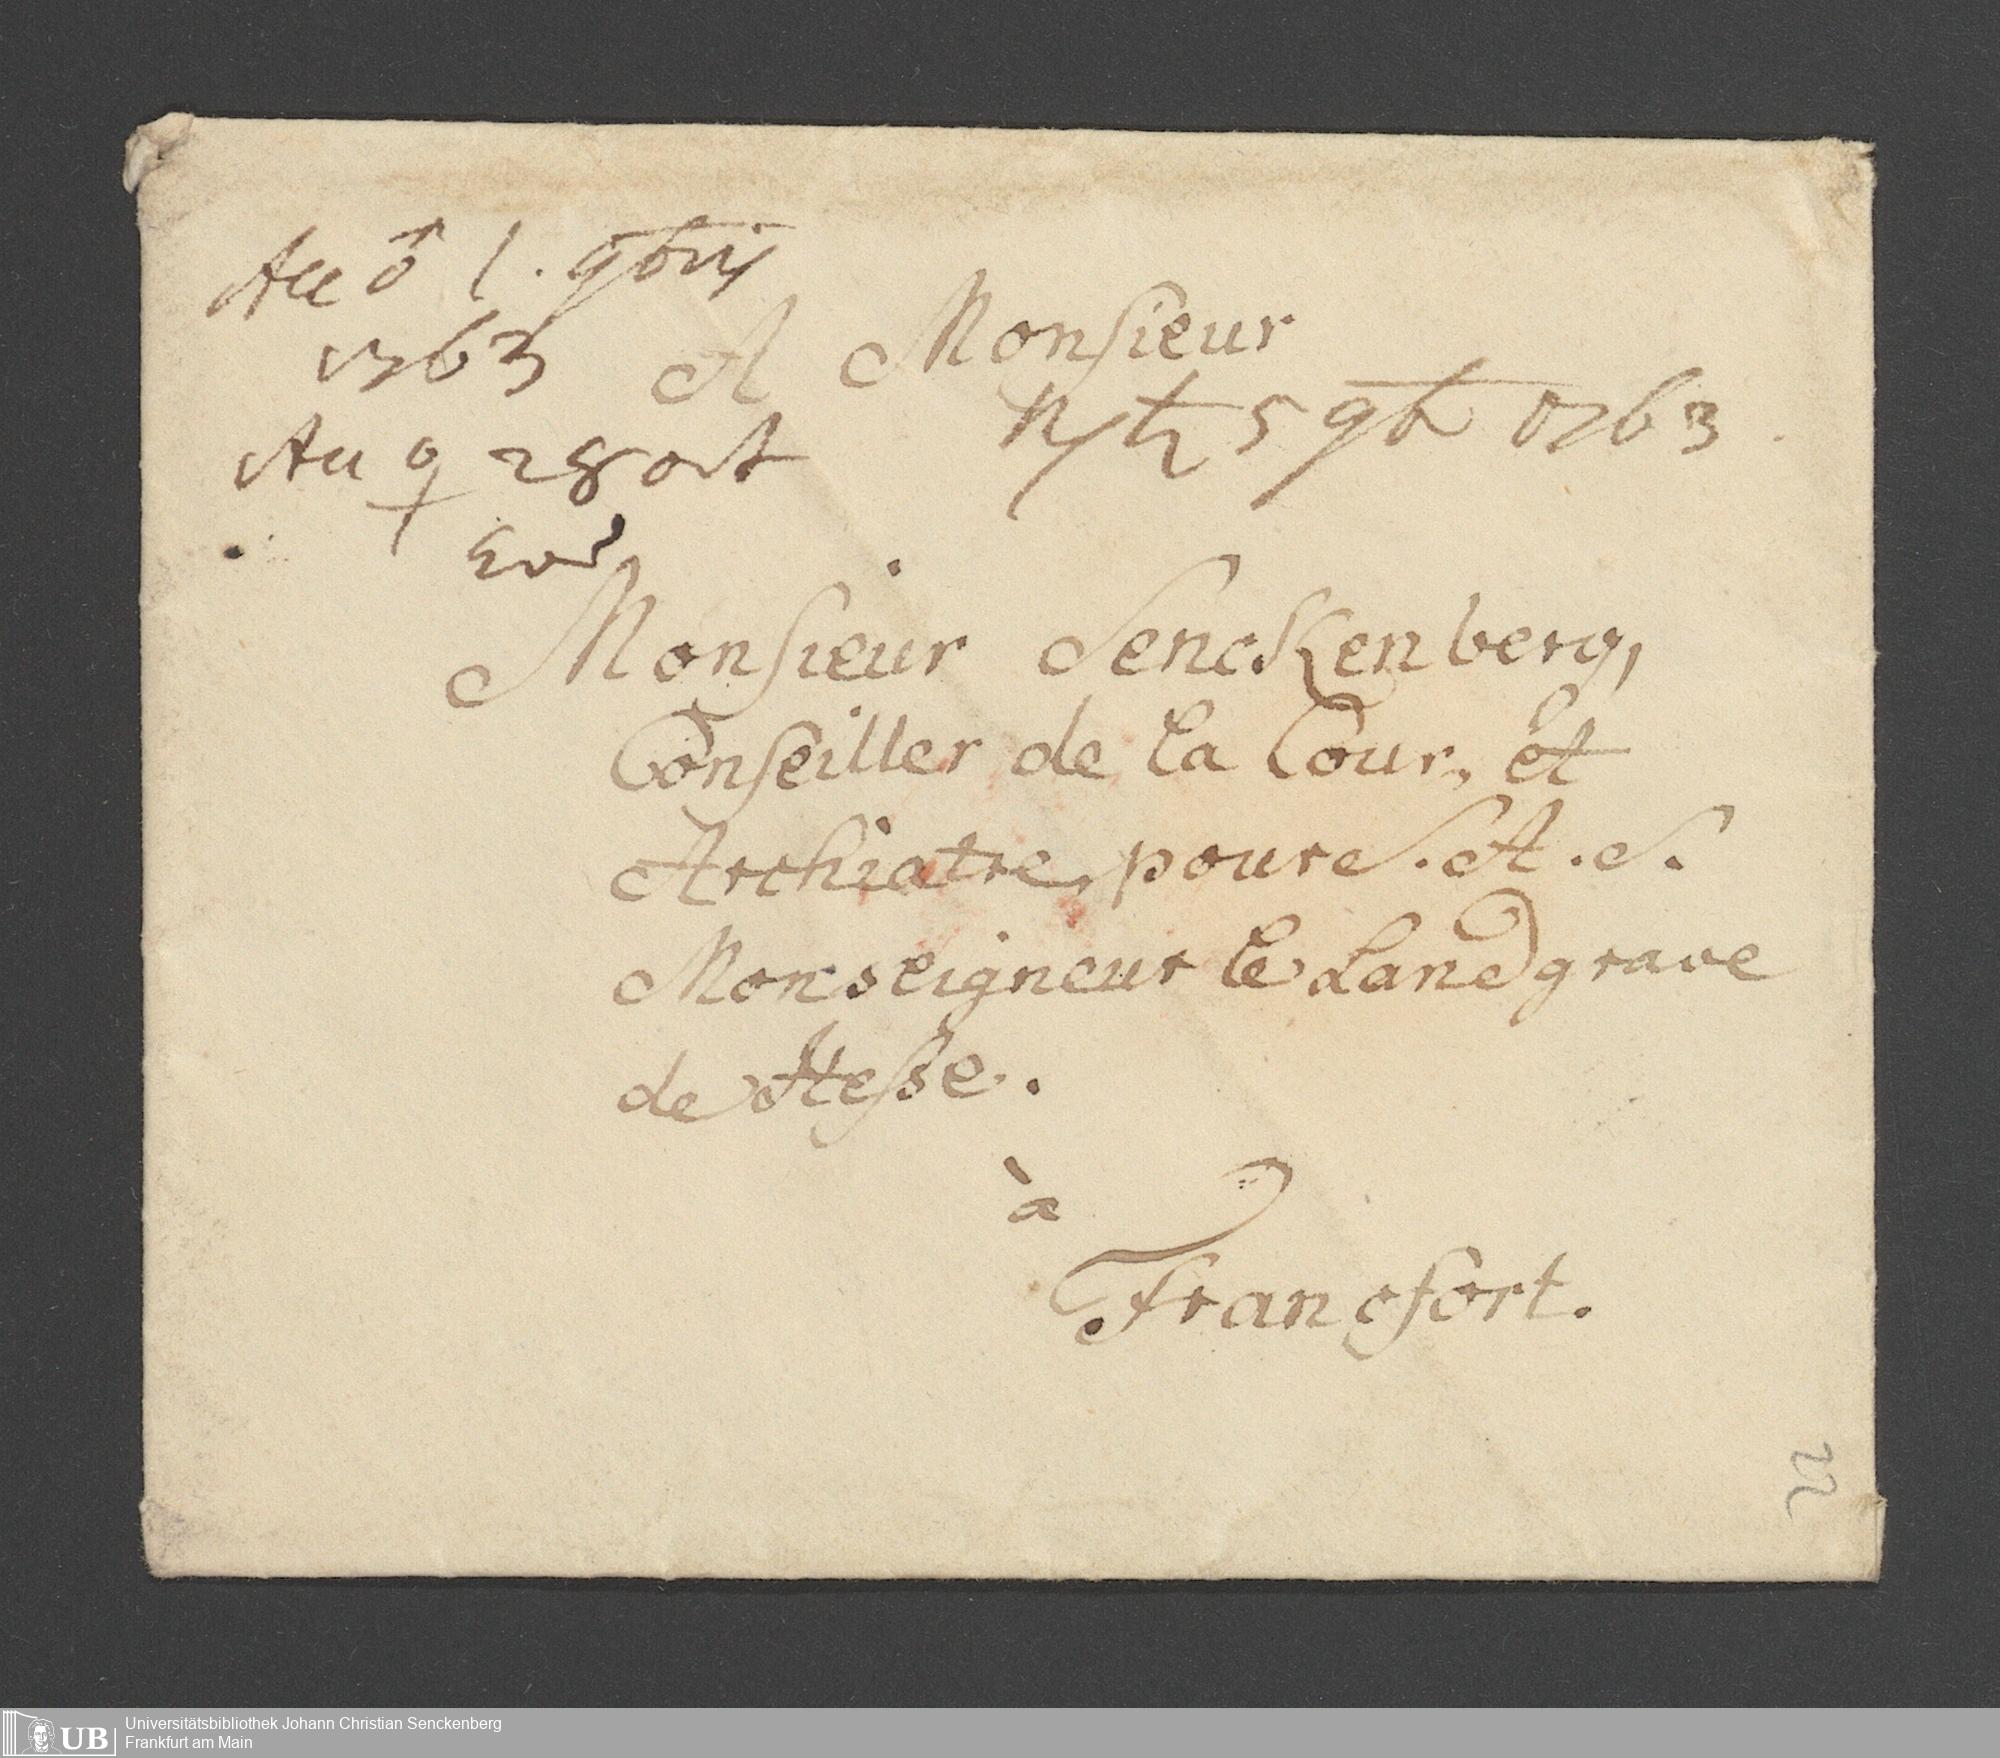 Acc ♂ 1. 9bris
1763
A Monsieur
Rp ♄ 5 9br 1763.
Au ♀ 28 oct
Monsieur Senckenberg,
Conseiller de la Cour, et
Archiatre, pour S. A. S.
Monseigneur le Landgrave
de Hesse.
à
Francfort.
22
UB Universitätsbibliothek Johann Christian Senckenberg
Frankfurt am Main